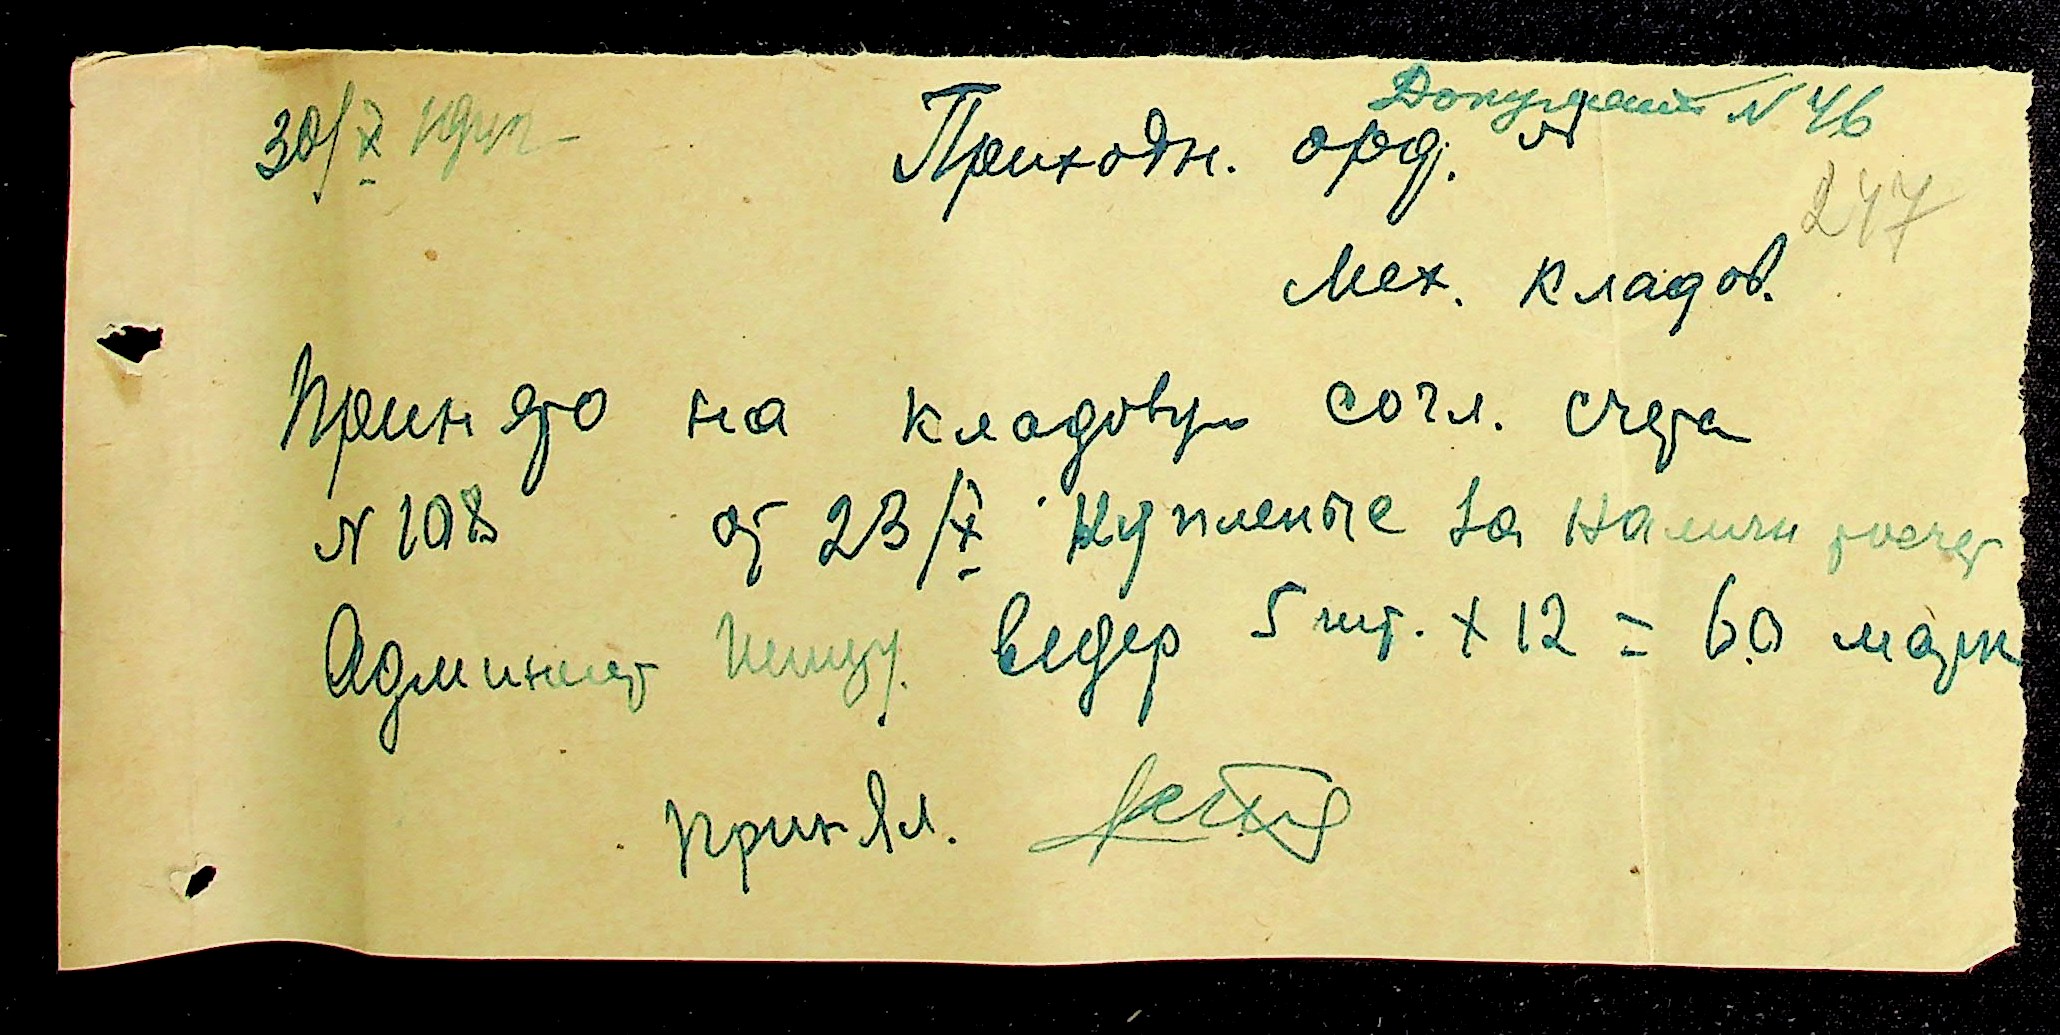 Документ N 46
30/X Приходн. орд. N
247
Мех. кладов.
Принято на кладовую согл. счета
N 108 от 23/X купленые за наличн расчет
Админист ведер 5 шт. х 12 = 60 марк
принял.